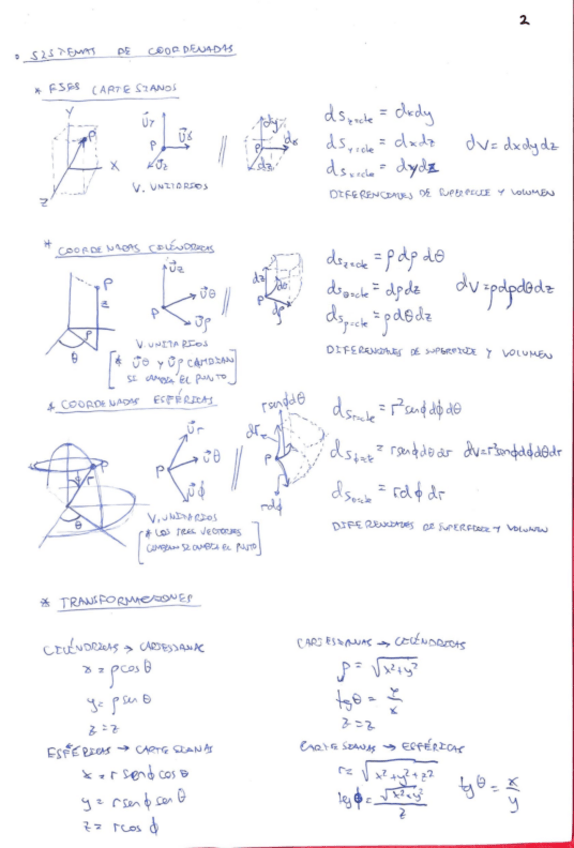 2
• SISTEMAS DE COORDENADAS
* EJES CARTESIANOS
Y
P
X
Z
P
V. UNITARIOS
P
dy
dx
dz
ds z=cte = dxdy
ds y=cte = dxdz
ds x=cte = dydz
dV = dxdydz
DIFERENCIALES DE SUPERFICIE Y VOLUMEN
* COORDENADAS CILÍNDRICAS
P
z
ρ
θ
U⃗z
U⃗θ
U⃗ρ
P
V. UNITARIOS
[* U⃗θ Y U⃗ρ CAMBIAN
SI CAMBIA EL PUNTO]
dz
dθ
P
dρ
ds z=cte = ρ dρ dθ
ds θ=cte = dρdz
ds ρ=cte = ρdθdz
dV = ρdρdθdz
DIFERENCIALES DE SUPERFICIE Y VOLUMEN
* COORDENADAS ESFÉRICAS
P
ϕ
r
θ
U⃗r
U⃗θ
U⃗ϕ
P
V. UNITARIOS
[* LOS TRES VECTORES
CAMBIAN SI CAMBIA EL PUNTO]
rsenϕdθ
dr
P
rdϕ
ds r=cte = r²senϕdϕdθ
ds ϕ=cte = rsenϕdθdr
dV=r²senϕdϕdθdr
ds θ=cte = rdϕdr
DIFERENCIALES DE SUPERFICIE Y VOLUMEN
* TRANSFORMACIONES
CILÍNDRICAS → CARTESIANAS
x = ρcosθ
y = ρsenθ
z = z
ESFÉRICAS → CARTESIANAS
x = r senϕ cosθ
y = rsenϕ senθ
z = rcosϕ
CARTESIANAS → CILÍNDRICAS
ρ = √x²+y²
tgθ = y/x
z = z
CARTESIANAS → ESFÉRICAS
r = √x²+y²+z²
tgϕ = √x²+y²/z
tgθ = x/y